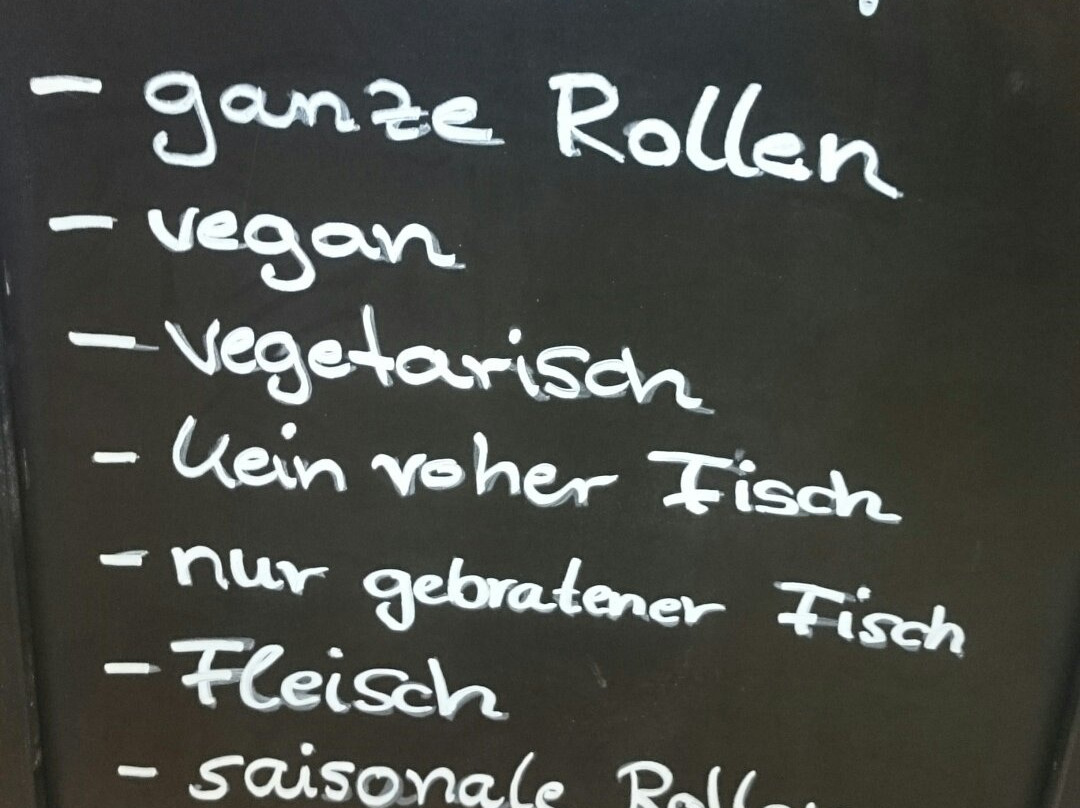 - ganze Rollen
- vegan
- vegetarisch
- kein roher Fisch
- nur gebratener Fisch
- Fleisch
- saisonale Rollen